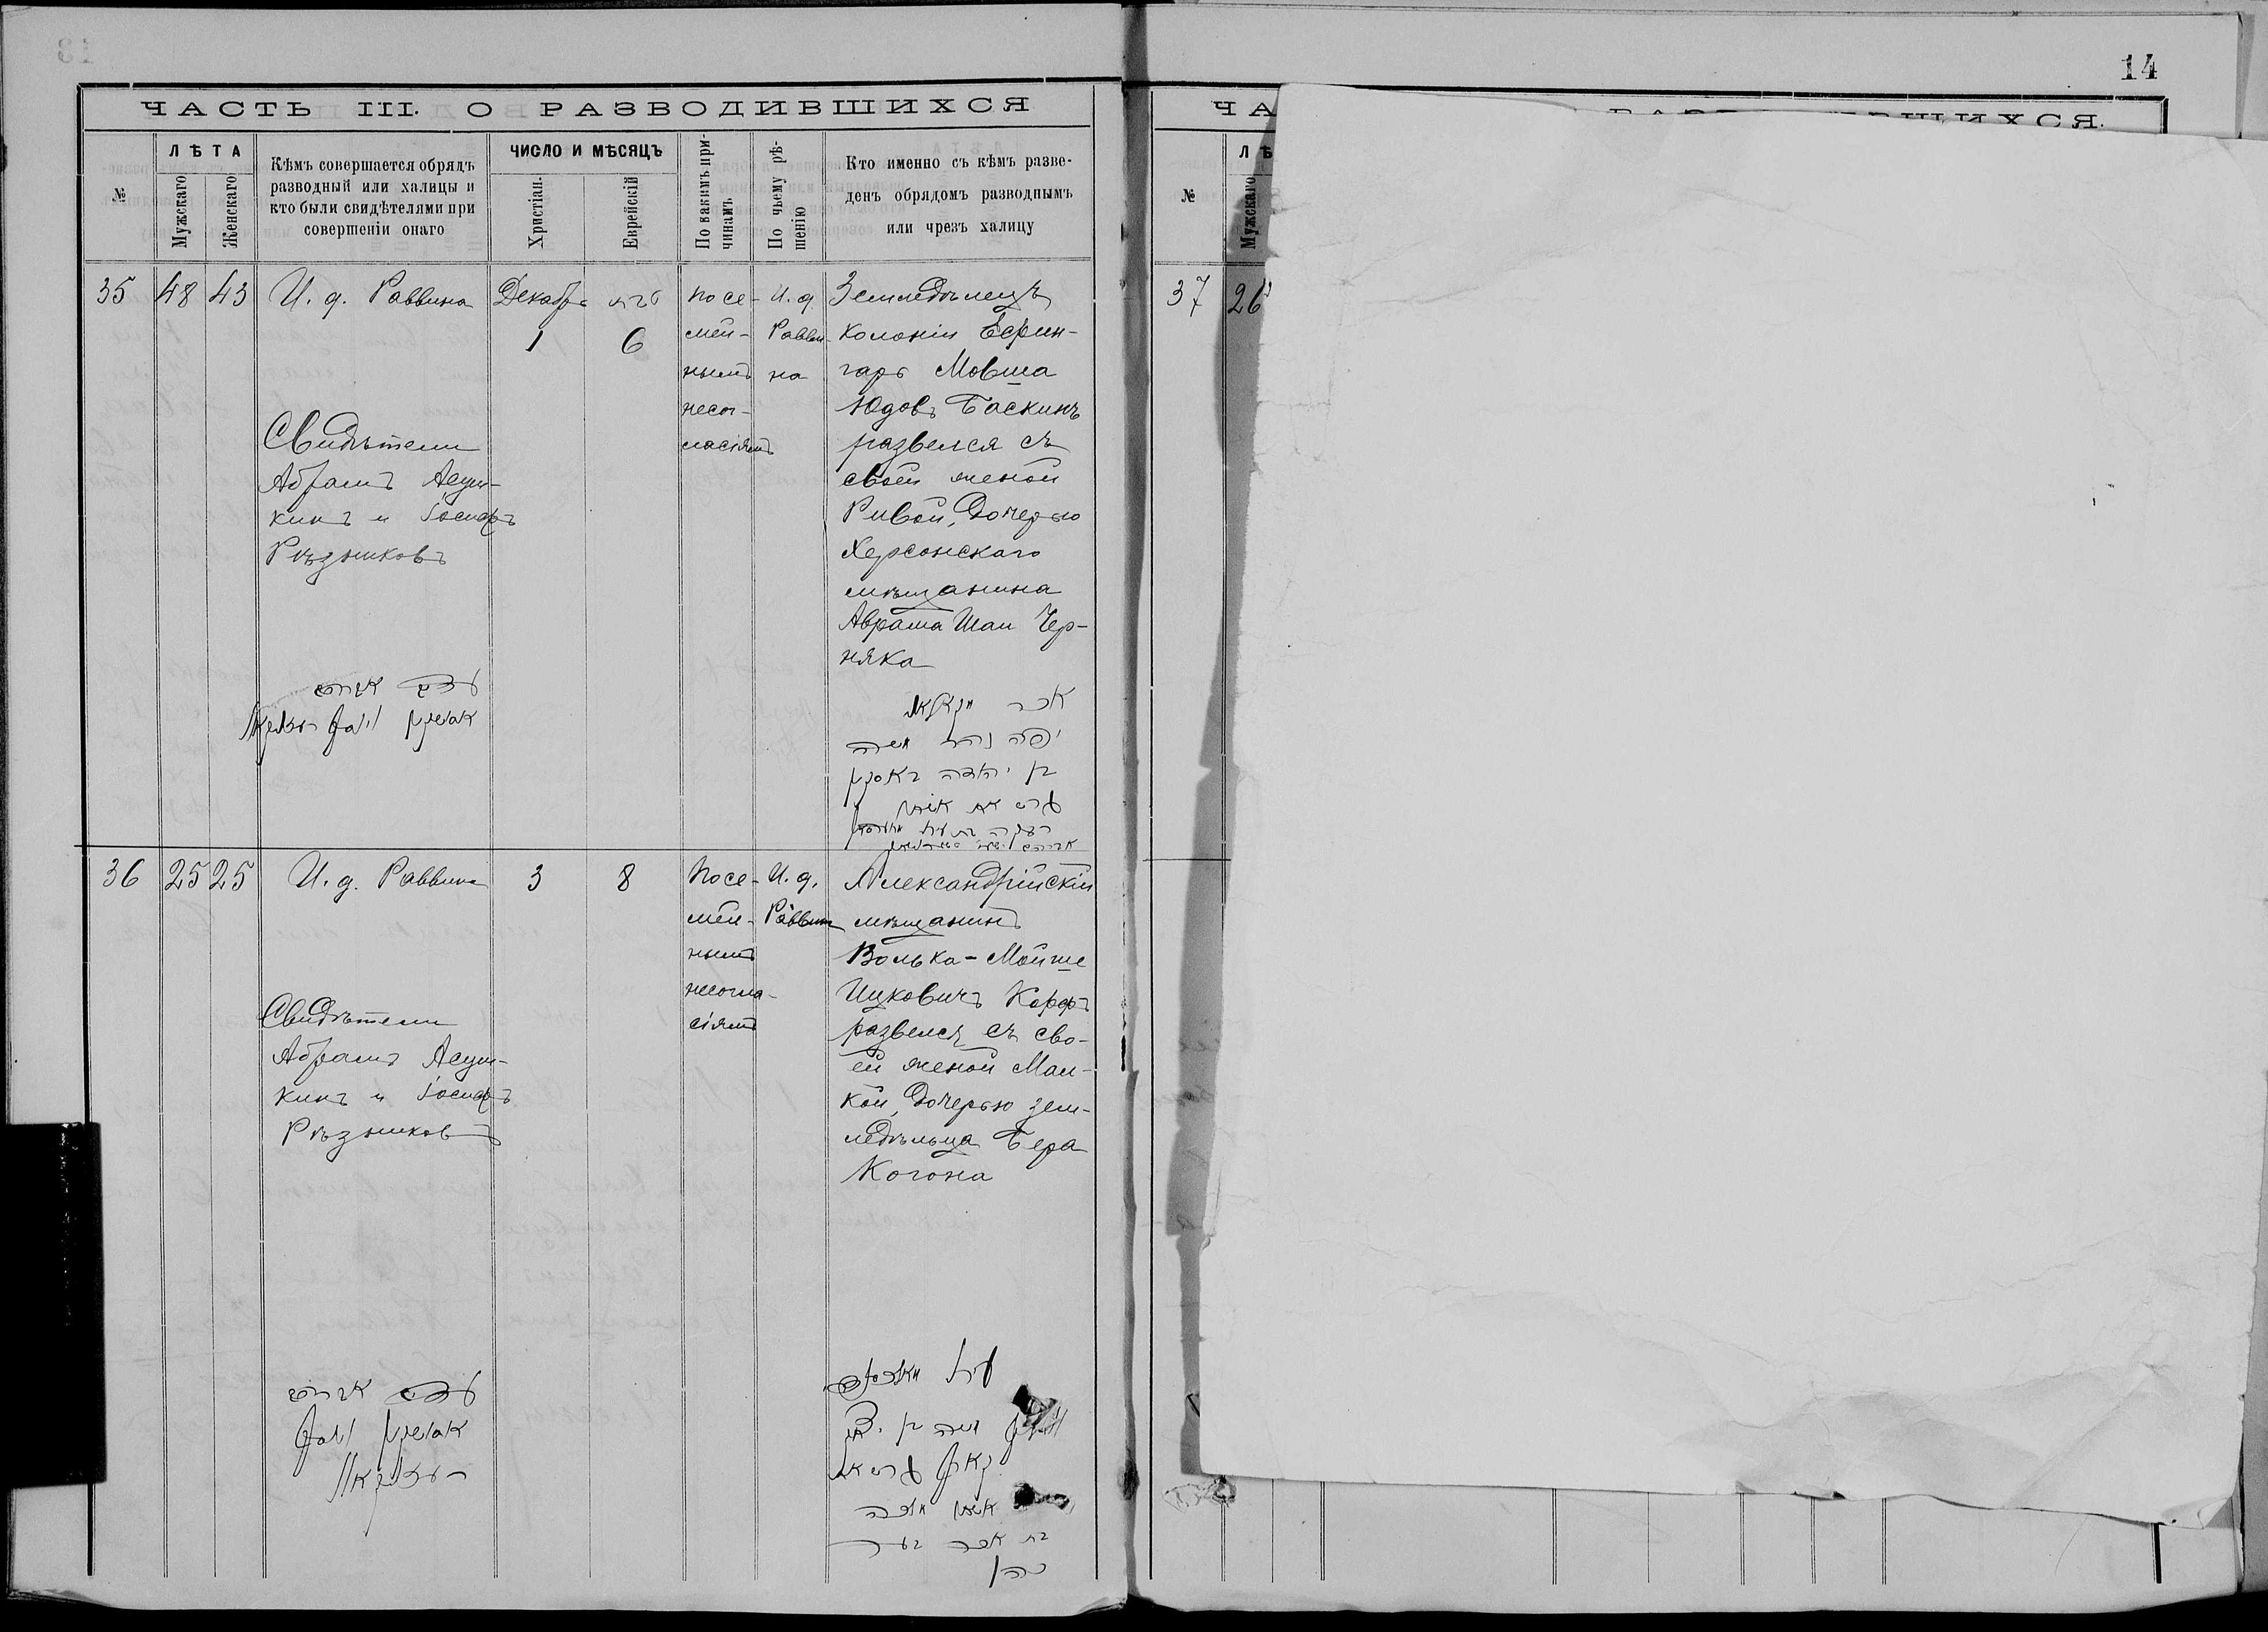 14
ЧАСТЬ III. О РАЗВОДИВШИХСЯ
№
ЛѢТА
Мужскаго
Женскаго
Кѣмъ совершается обрядъ
разводный или халицы и
кто были свидѣтелями при
совершеніи онаго
ЧИСЛО И МѢСЯЦЪ
Христіан.
Еврейскій
По какимъ при-
чинамъ
По чьему рѣ-
шенію
Кто именно съ кѣмъ разве-
денъ обрядомъ разводнымъ
или чрезъ халицу
35
48
43
И. д. Раввина
Свидѣтели
Абрамъ
кинъ и Іосифъ
Рѣзниковъ
Декабрь
1
טבת
6
По се-
мей-
нымъ
несог-
ласіямъ
И. д.
Равви-
на
Земледѣлецъ
колоніи Ефин-
гаръ Мовша
Юдовъ Баскинъ
развелся съ
своей женой
Ривой, дочерью
Херсонскаго
мѣщанина
Аврама Шаи Чер-
няка
עדים אברהם
יפה נהר משה
בן יהודה באסקין
גרש את אשתו
36
25
25
И. д. Раввина
Свидѣтели
Абрамъ
кинъ и Іосифъ
Рѣзниковъ
3
8
По се-
мей-
нымъ
несогла-
сіямъ
И. д.
Раввина
Александрійскій
мѣщанинъ
Волька-Мойше
Ицковичъ Корфъ
развелся съ сво-
ей женой Мал-
кой, дочерью зем-
ледѣльца Бера
Когона
עדים אברהם
משה בן
גרש את
אשתו מלכה
כהן
ЧА
ВШИХСЯ.
№
ЛѢ
Мужскаго
37
26